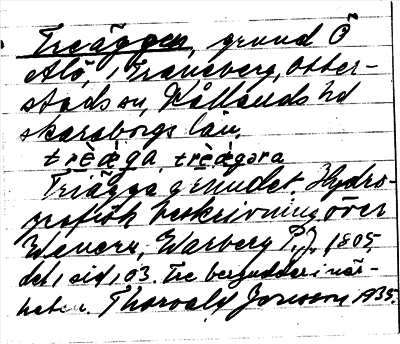 Treäggen, grund Ö
Alö, Traneberg, Otter-
stads sn, Kållands hd
skaraborgs län.
trèǽga, trèǽgəra
Triägga grundet, Hydro-
grafisk beskrivning över
Wenern, Warberg P.J. 1805,
del 1 sid 103. Tre bergudder i när-
heten. Thorvald Jonsson 1935.